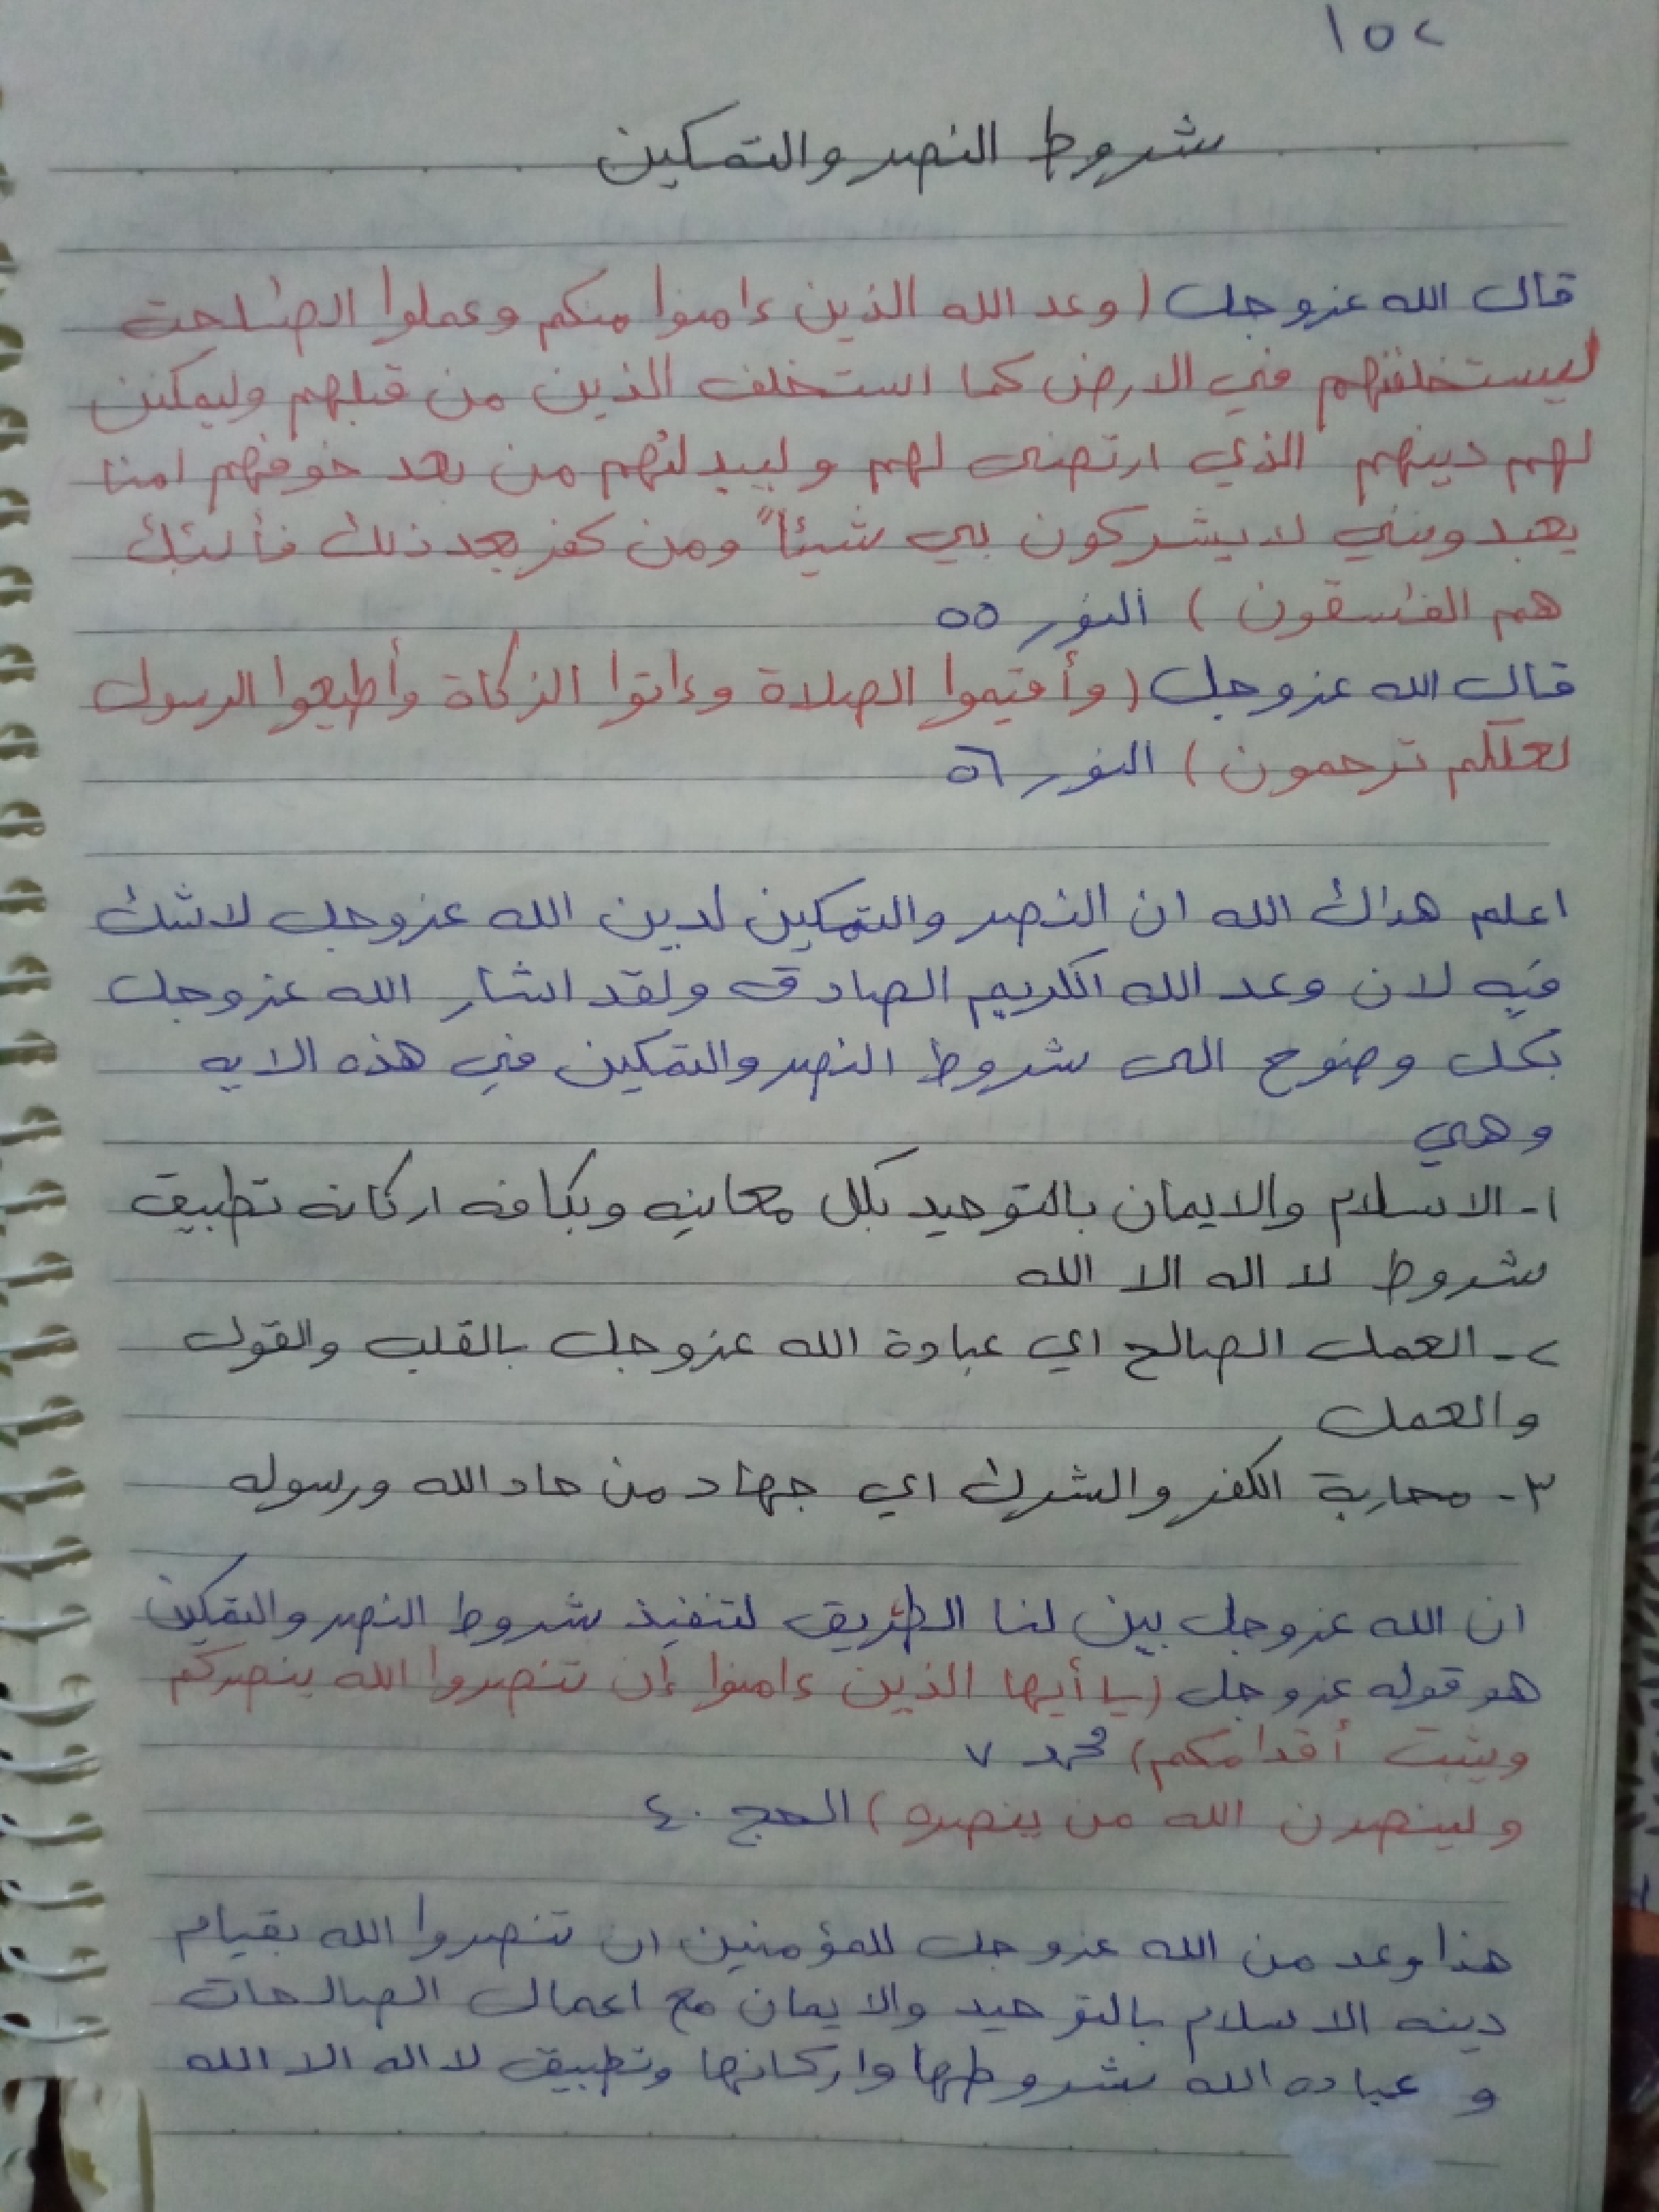 ١٥٢
شروط النصر والتمكين
قال الله عزوجل (وعد الله الذين ءامنوا منكم وعملوا الصٰلحت
ليستخلفنهم في الارض كما استخلف الذين من قبلهم وليمكنن
لهم دينهم الذي ارتضى لهم وليبدلنهم من بعد خوفهم امنا
يعبدونني لا يشركون بي شيئاً ومن كفر بعد ذلك فأولئك
هم الفٰسقون) النور ٥٥
قال الله عزوجل (وأقيموا الصلاة وءاتوا الزكاة وأطيعوا الرسول
لعلكم ترحمون) النور ٥٦
اعلم هداك الله ان النصر والتمكين لدين الله عزوجل لاشك
فيه لان وعد الله الكريم الصادق ولقد اشار الله عزوجل
بكل وضوح الى شروط النصر والتمكين في هذه الايه
وهي
١- الاسلام والايمان بالتوحيد بكل معانيه وبكافه اركانه تطبيق
شروط لا اله الا الله
٢- العمل الصالح اي عبادة الله عزوجل بالقلب والقول
والعمل
٣- محاربة الكفر والشرك اي جهاد من حاد الله ورسوله
ان الله عزوجل بين لنا الطريق لتنفيذ شروط النصر والتمكين
هو قوله عزوجل (يا أيها الذين ءامنوا إن تنصروا الله ينصركم
ويثبت أقدامكم) محمد ٧
ولينصرن الله من ينصره) الحج ٤٠
هذا وعد من الله عزوجل للمؤمنين ان تنصروا الله بقيام
دينه الاسلام بالتوحيد والايمان مع اعمال الصالحات
و عباده الله بشروطها واركانها وتطبيق لا اله الا الله